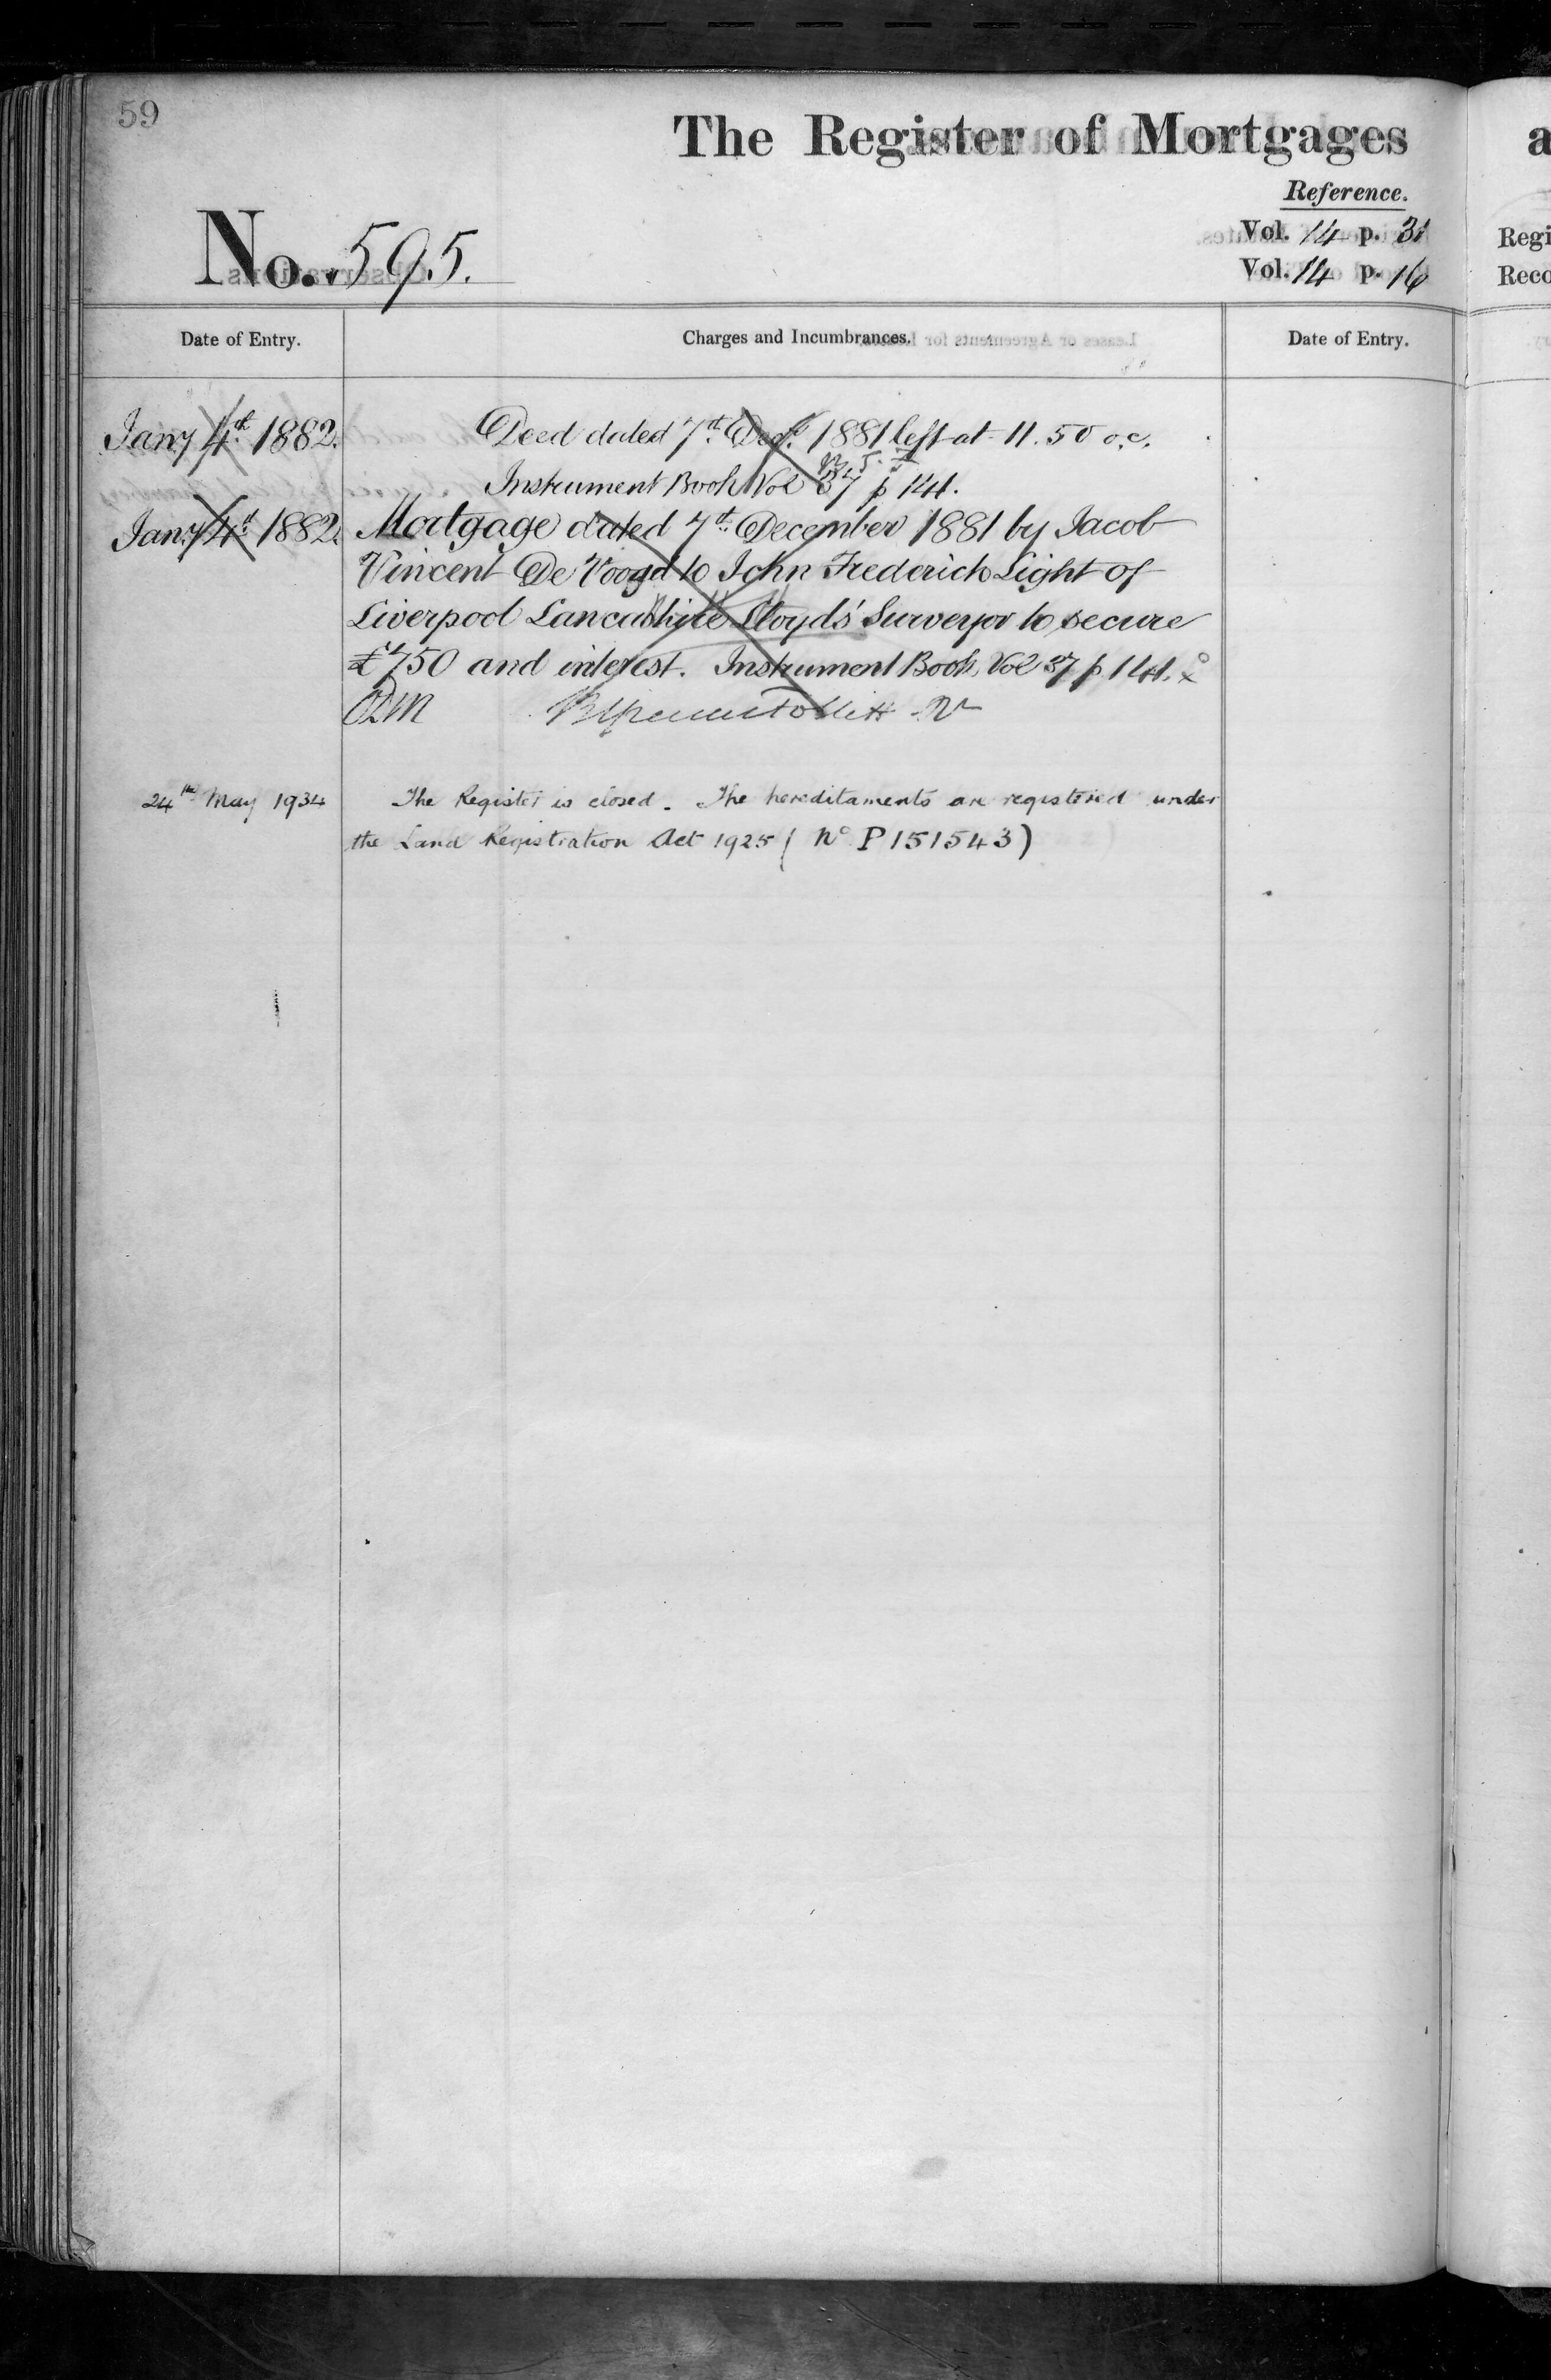 59
The Register of Mortgages
Reference.
Vol. 14 p. 31
Vol. 14 p. 16
No. 595.
Date of Entry.
Charges and Incumbrances.
Date of Entry.
Jany 4th 1882.
Deed dated 7th Decr. 1881 left at 11.50 o.c.
Instrument Book Vol 37 p 141.
Jany 4th 1882.
Mortgage dated 7th December 1881 by Jacob
Vincent De Voogd to John Frederick Light of
Liverpool Lancashire Lloyds' Surveyor to secure
£750 and interest. Instrument Book Vol 37 p 141.
24th May 1934
The Register is closed. The hereditaments are registered under
the Land Registration Act 1925 (No P151543)
a
Regi
Reco